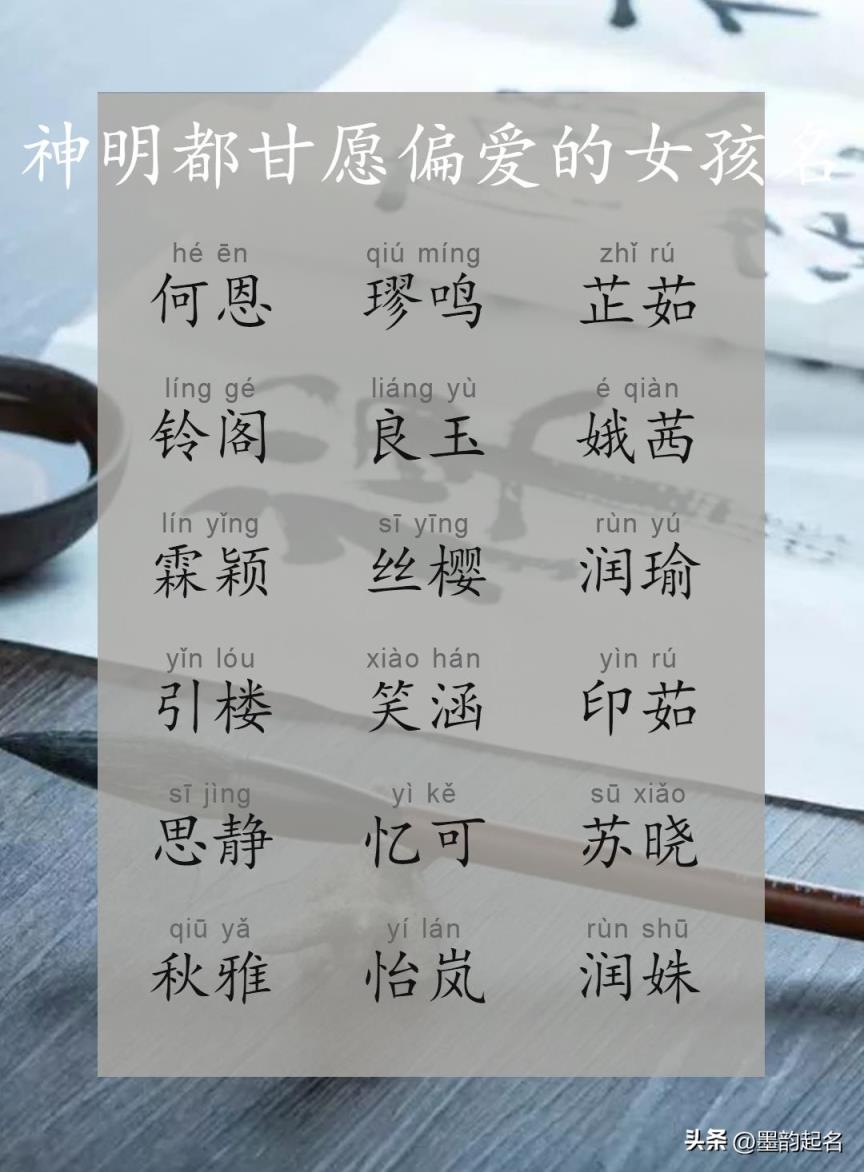 神明都甘愿偏爱的女孩名
hé ēn qiú míng zhǐ rú
何恩 璆鸣 芷茹
líng gé liáng yù é qiàn
铃阁 良玉 娥茜
lín yǐng sī yīng rùn yú
霖颖 丝樱 润瑜
yǐn lóu xiào hán yìn rú
引楼 笑涵 印茹
sī jìng yì kě sū xiǎo
思静 忆可 苏晓
qiū yǎ yí lán rùn shū
秋雅 怡岚 润姝
头条 @墨韵起名